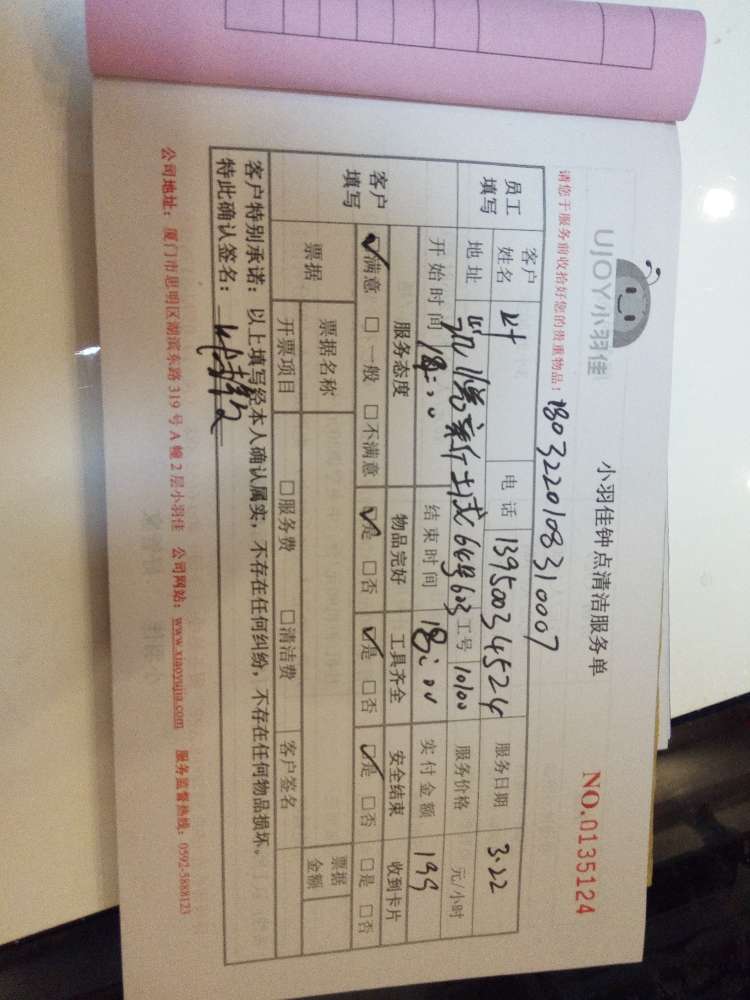 UJOY小羽佳
小羽佳钟点清洁服务单
NO.0135124
请您于服务前收拾好您的贵重物品!
1803220108310007
员工填写
客户姓名 叶 电话 13950034524 服务日期 3.22
地址 664号603 工号 10100 服务价格 元/小时
开始时间 结束时间 18:00 实付金额 199
客户填写
服务态度 物品完好 工具齐全 安全结束 收到卡片
☑满意 □一般 □不满意 ☑是 □否 ☑是 □否 ☑是 □否 □是 □否
票据 票据名称 票据金额
开票项目 □服务费 □清洁费 客户签名
客户特别承诺:以上填写经本人确认属实,不存在任何纠纷,不存在任何物品损坏。
特此确认签名:
公司地址:厦门市思明区湖滨东路319号A幢2层小羽佳 公司网站:www.xiaoyujia.com 服务监督热线:0592-5888123